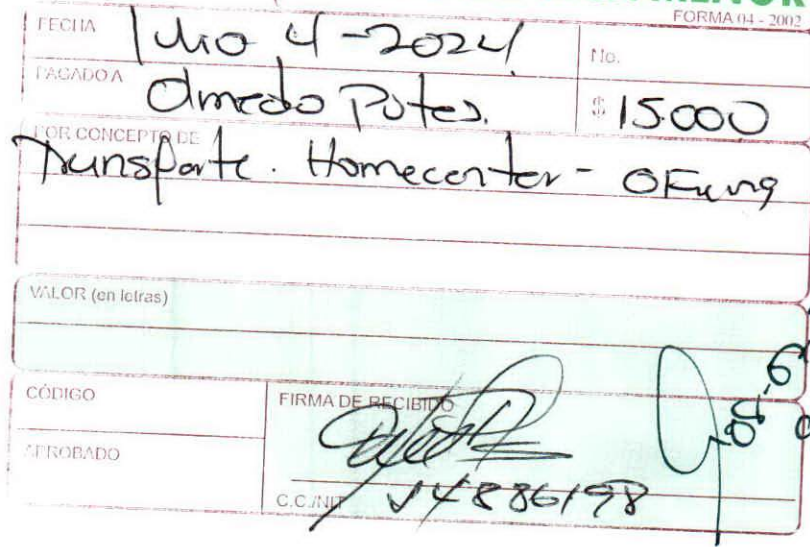 FORMA 04 - 2002
FECHA Julio 4 - 2024 No.
PAGADO A Olmedo Potes. $ 15.000
POR CONCEPTO DE
Transporte. Homecenter - Oficina
VALOR (en letras)
CÓDIGO
FIRMA DE RECIBIDO
APROBADO
C.C./NIT 14886198